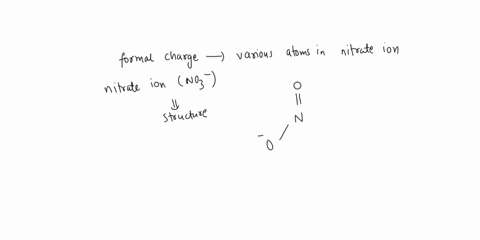 formal charge → various atoms in nitrate ion
nitrate ion (NO3⁻)
⇓
structure
O
||
N
⁻O /